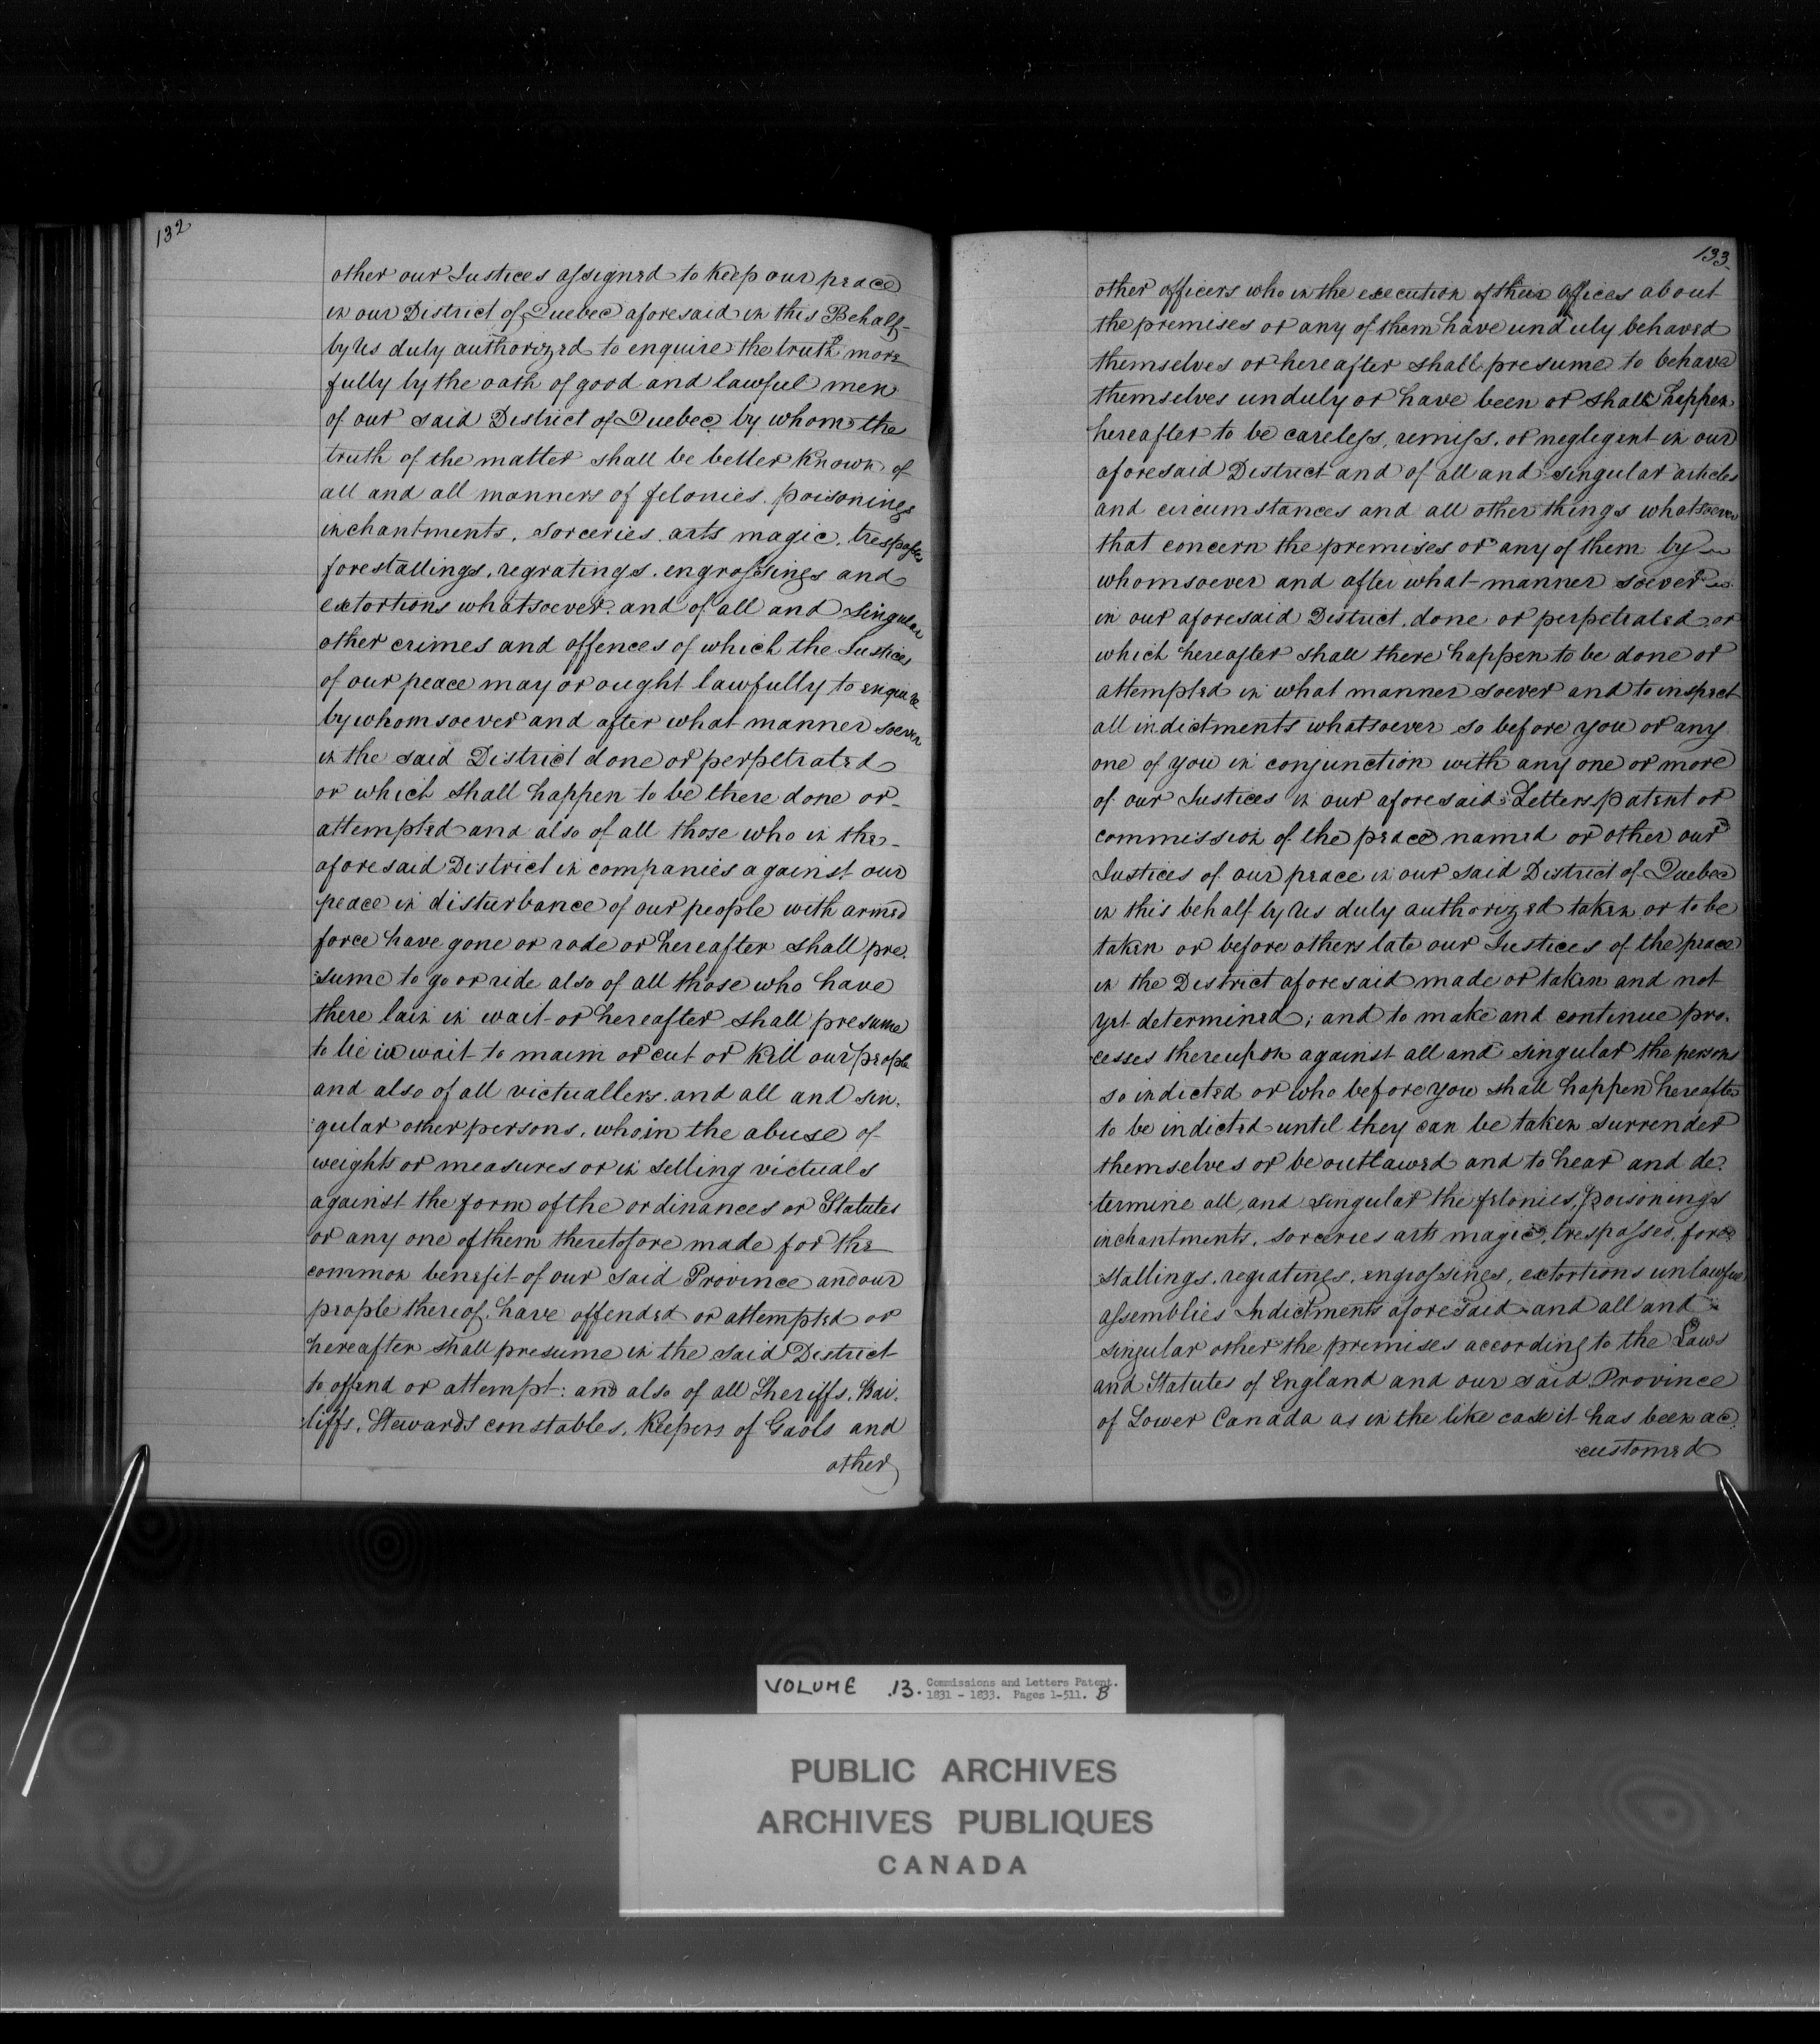 132
other our Justices assigned to keep our peace
in our District of Quebec aforesaid in this Behalf
by Us duly authorized to enquire the truth more
fully by the oath of good and lawful men
of our said District of Quebec by whom the
truth of the matter shall be better known of
all and all manners of felonies. poisonings
inchantments, sorceries. arts magic, trespasses
forestallings, regratings. engrossings and
extortions whatsoever. and of all and singular
other crimes and offences of which the Justices
of our peace may or ought lawfully to enquire
by whomsoever and after what manner soever
in the said District done or perpetrated
or which shall happen to be there done or
attempted and also of all those who in the
aforesaid District in companies against our
peace in disturbance of our people with armed
force have gone or rode or hereafter shall pre.
:sume to go or ride also of all those who have
there lain in wait or hereafter shall presume
to lie in wait to maim or cut or kill our people
and also of all victuallers. and all and sin.
:gular other persons, who in the abuse of
weights or measures or in selling victuals
against the form of the ordinances or Statutes
or any one of them theretofore made for the
common benefit of our said Province and our
people thereof, have offended or attempted or
hereafter shall presume in the said District
to offend or attempt: and also of all Sheriffs, Bai.
liffs, Stewards constables, Keepers of Gaols and
other
133
other officers who in the execution of their offices about
the premises or any of them have unduly behaved
themselves or hereafter shall presume to behave
themselves unduly or have been or shall happen
hereafter to be careless, remiss, or negligent in our
aforesaid District and of all and singular articles
and circumstances and all other things whatsoever
that concern the premises or any of them by
whomsoever and after what manner soever
in our aforesaid District, done or perpetrated or
which hereafter shall there happen to be done or
attempted in what manner soever and to inspect
all indictments whatsoever so before you or any
one of you in conjunction with any one or more
of our Justices in our aforesaid Letters patent or
commission of the peace named or other our
Justices of our peace in our said District of Quebec
in this behalf by Us duly authorized taken or to be
taken or before others late our Justices of the peace
in the District aforesaid made or taken and not
yet determined; and to make and continue pro.
cesses thereupon against all and singular the persons
so indicted or who before you shall happen hereafter
to be indicted until they can be taken surrender
themselves or be outlawed and to hear and de.
termine all and singular the felonies, poisonings
inchantments, sorceries arts magic, trespasses, fore
:stallings, regratings, engrossings, extortions unlawful
assemblies Indictments aforesaid and all and
singular other the premises according to the Laws
and Statutes of England and our said Province
of Lower Canada as in the like case it has been ac
customed
VOLUME 13. Commissions and Letters Patent.
1831 - 1833. Pages 1-511. B
PUBLIC ARCHIVES
ARCHIVES PUBLIQUES
CANADA